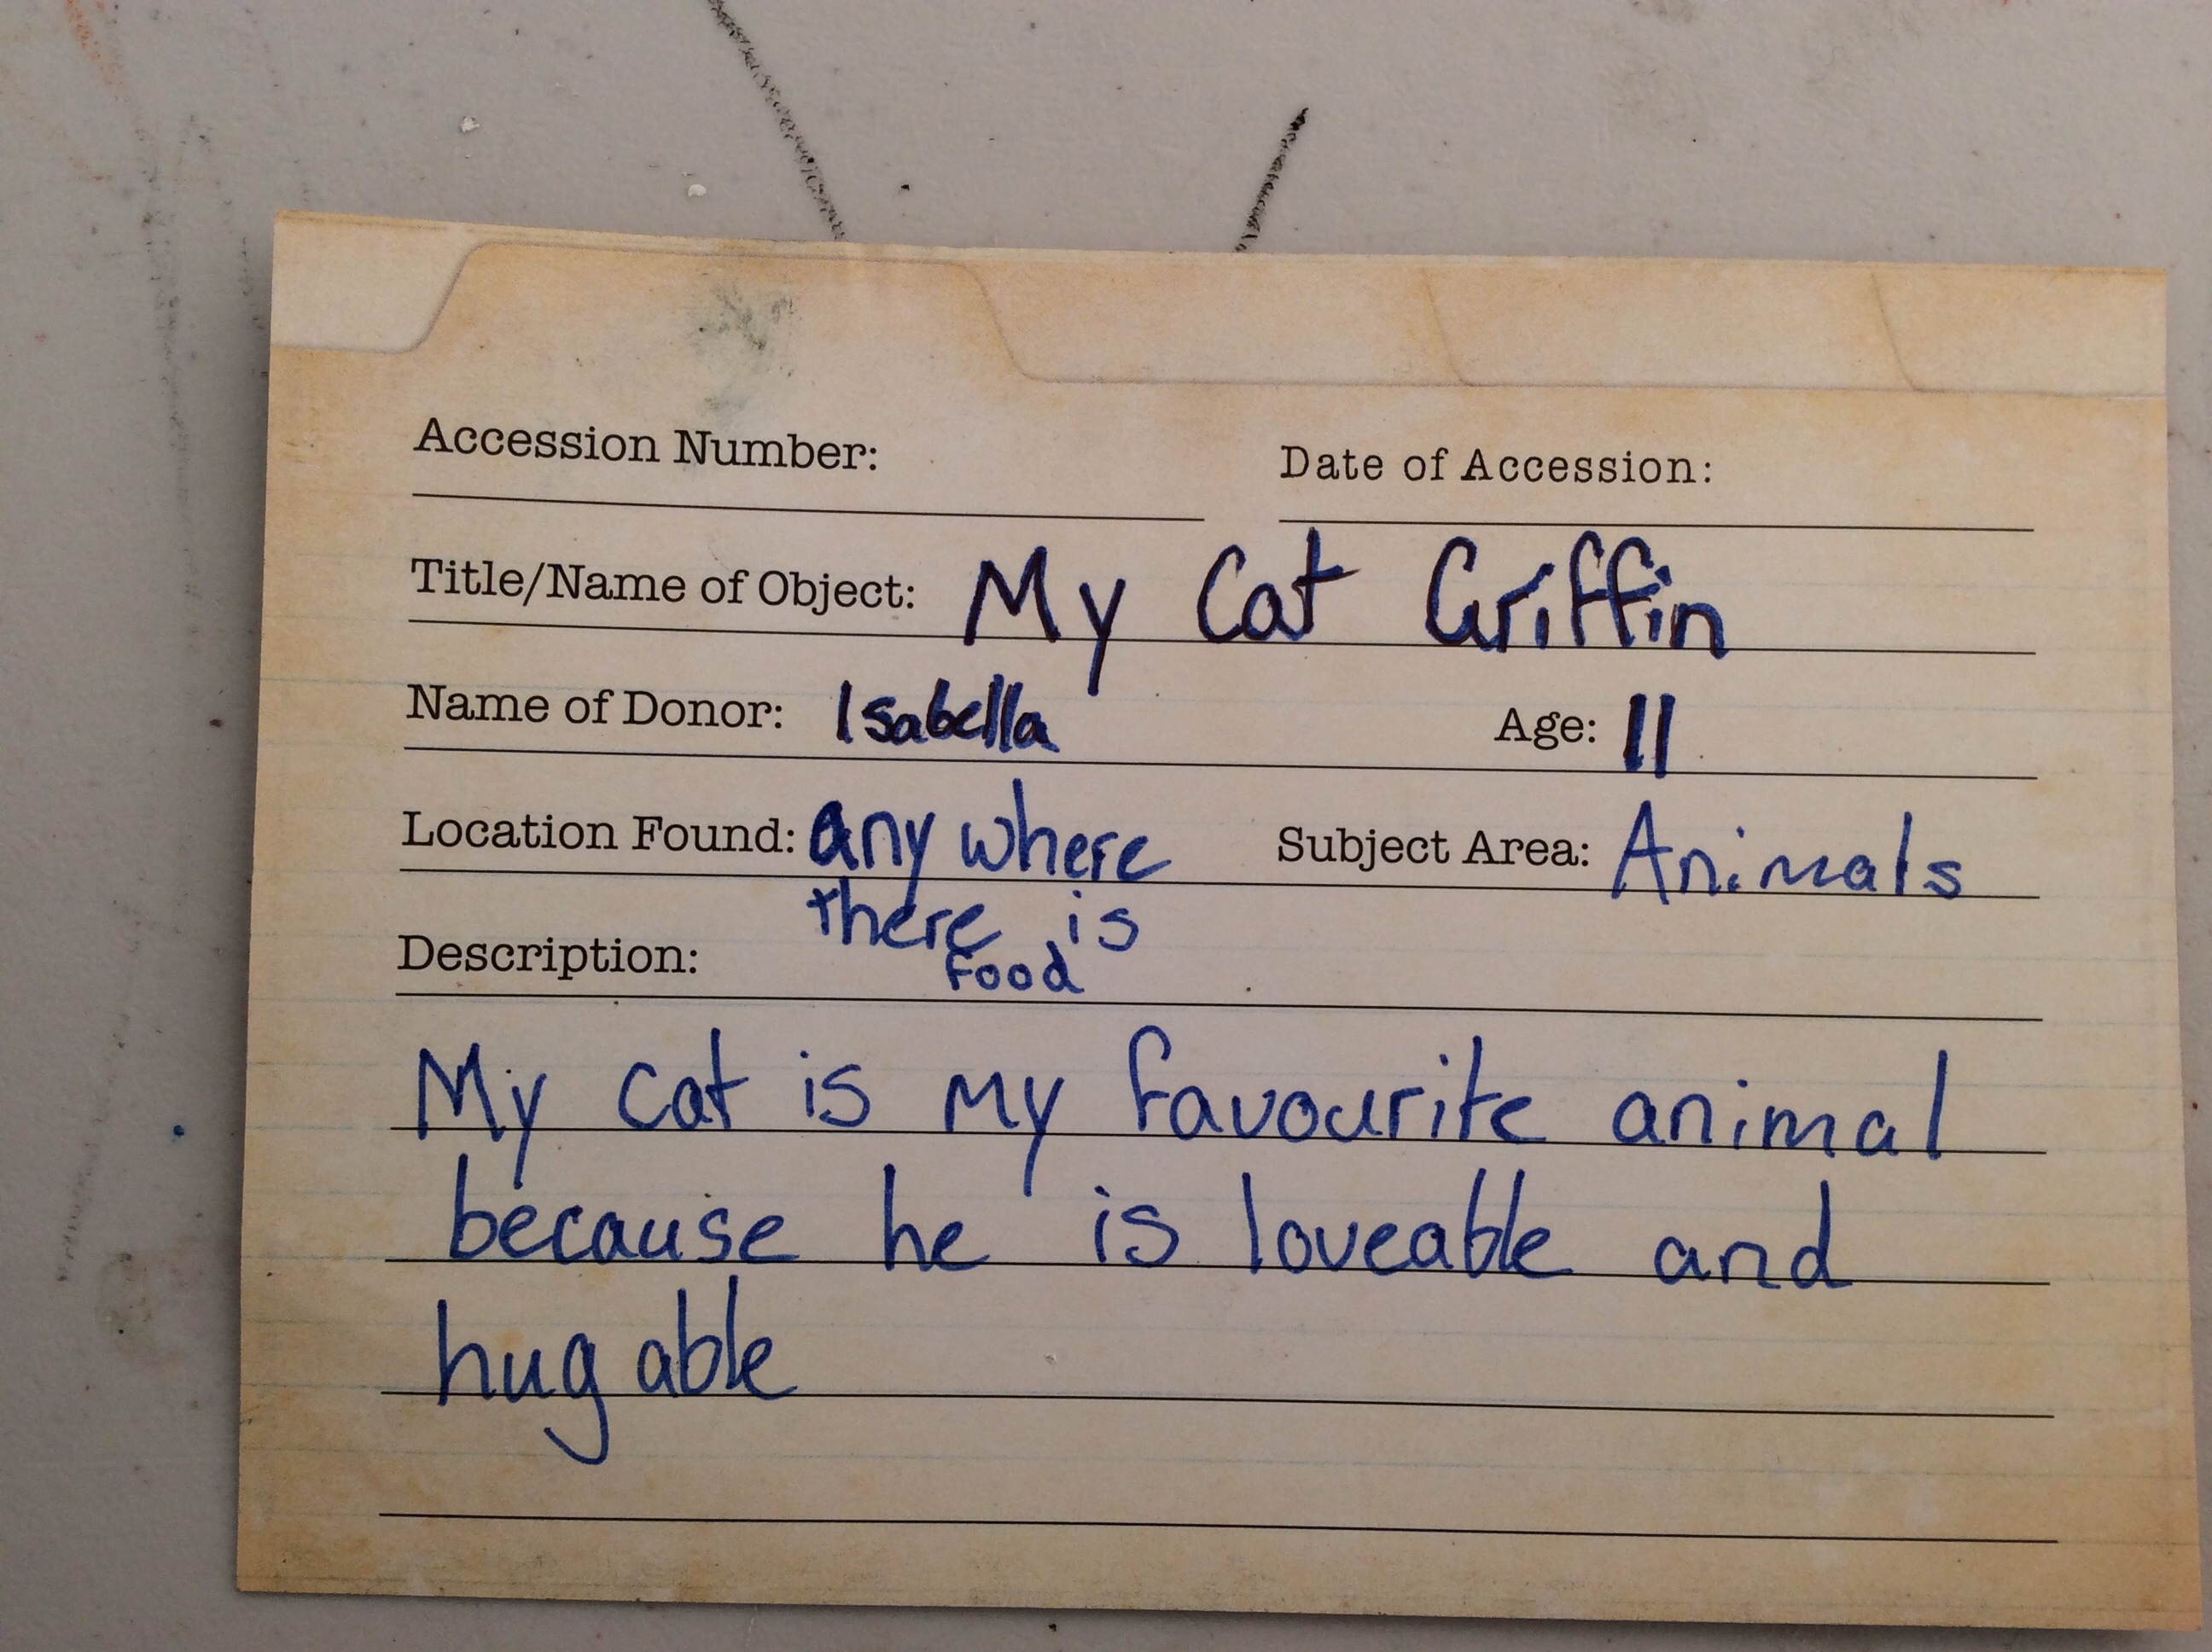 Accession Number: Date of Accession:
Title/Name of Object: My Cat Griffin
Name of Donor: Isabella Age: 11
Location Found: any where Subject Area: Animals
there is
food
Description:
My cat is my favourite animal
because he is loveable and
hug able